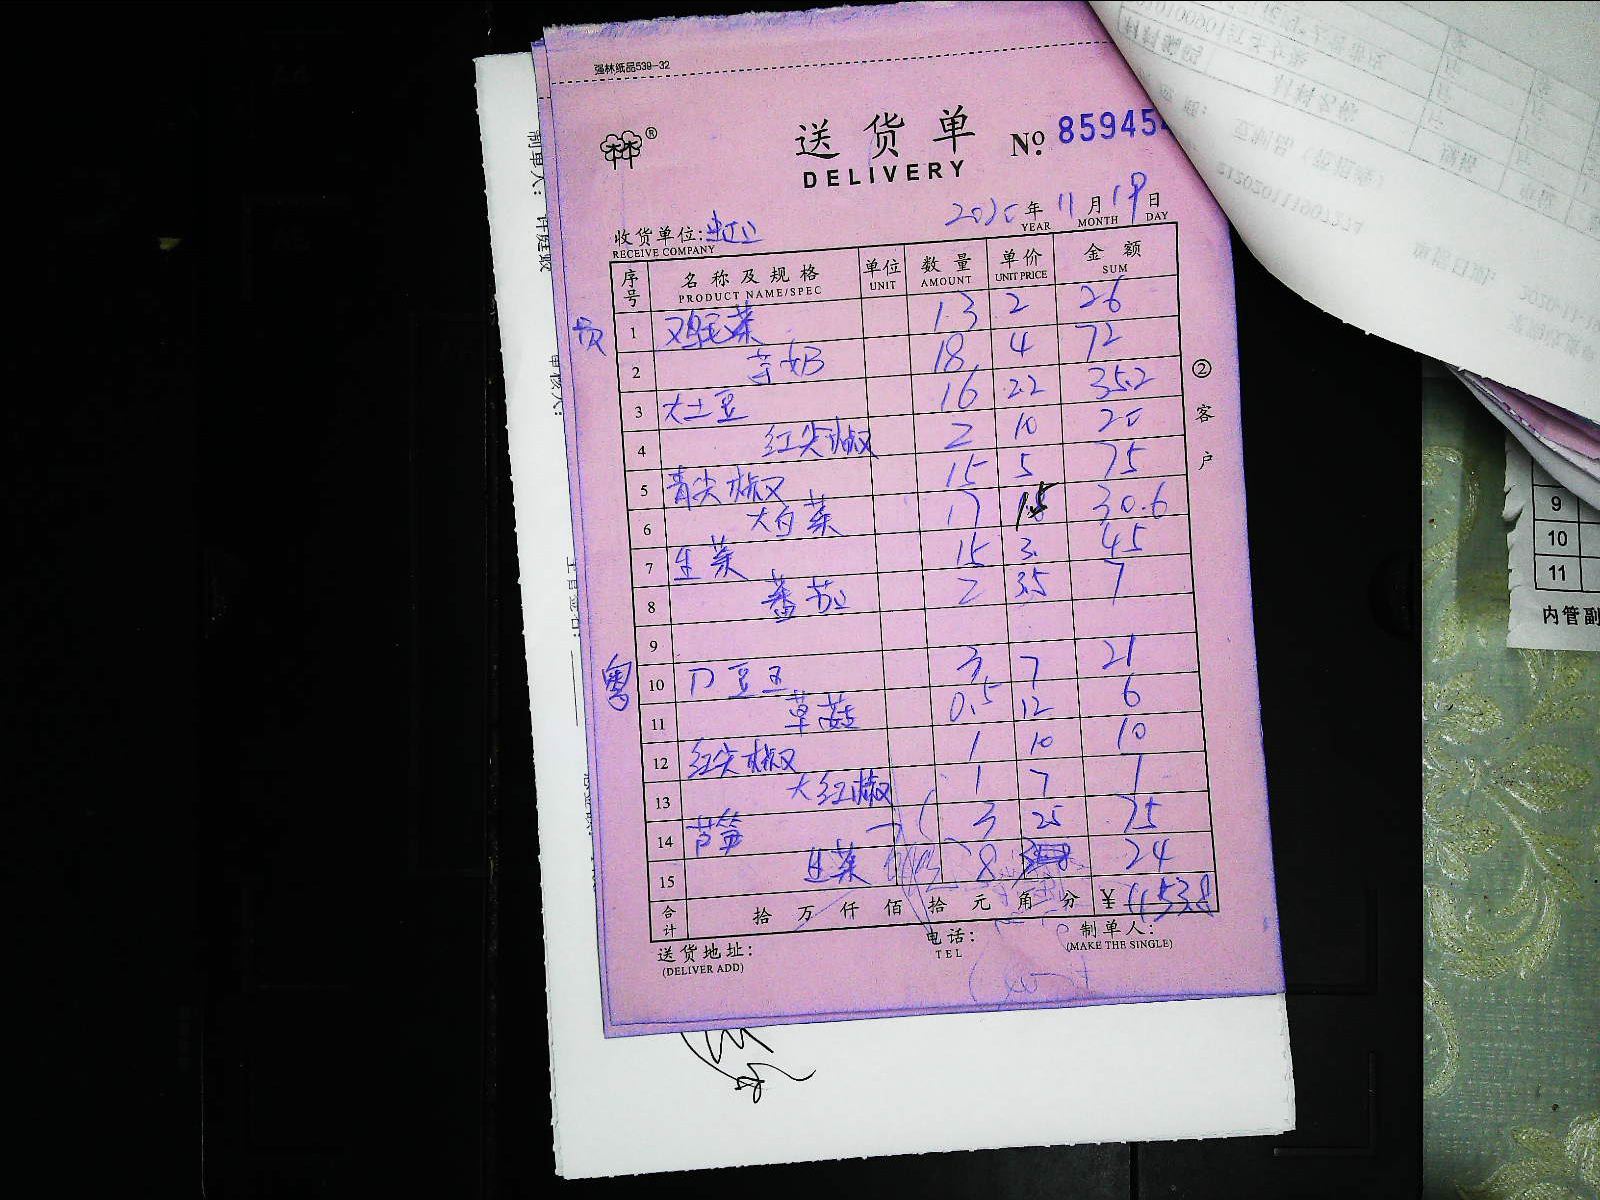 强林纸品539-32
林®
送货单
DELIVERY
№ 859454
2020年 11月 19日
YEAR MONTH DAY
收货单位:
RECEIVE COMPANY
序号 名称及规格 单位 数量 单价 金额
PRODUCT NAME/SPEC UNIT AMOUNT UNIT PRICE SUM
员
1 鸡毛菜 13 2 26
2 芋奶 18 4 72
3 大土豆 16 2.2 35.2
4 红尖椒 2 10 20
5 青尖椒 15 5 75
6 大白菜 17 30.6
7 生菜 15 3 45
8 蕃茄 2 3.5 7
9
粤
10 刀豆 3 7 21
11 草菇 0.5 12 6
12 红尖椒 1 10 10
13 大红椒 1 7 7
14 芦笋 3 25 75
15 生菜 8 3 24
合计 拾 万 仟 佰 拾 元 角 分 ¥
送货地址:
(DELIVER ADD)
电话:
TEL
制单人:
(MAKE THE SINGLE)
② 客户
制单人:
审核人:
9
10
11
内管副